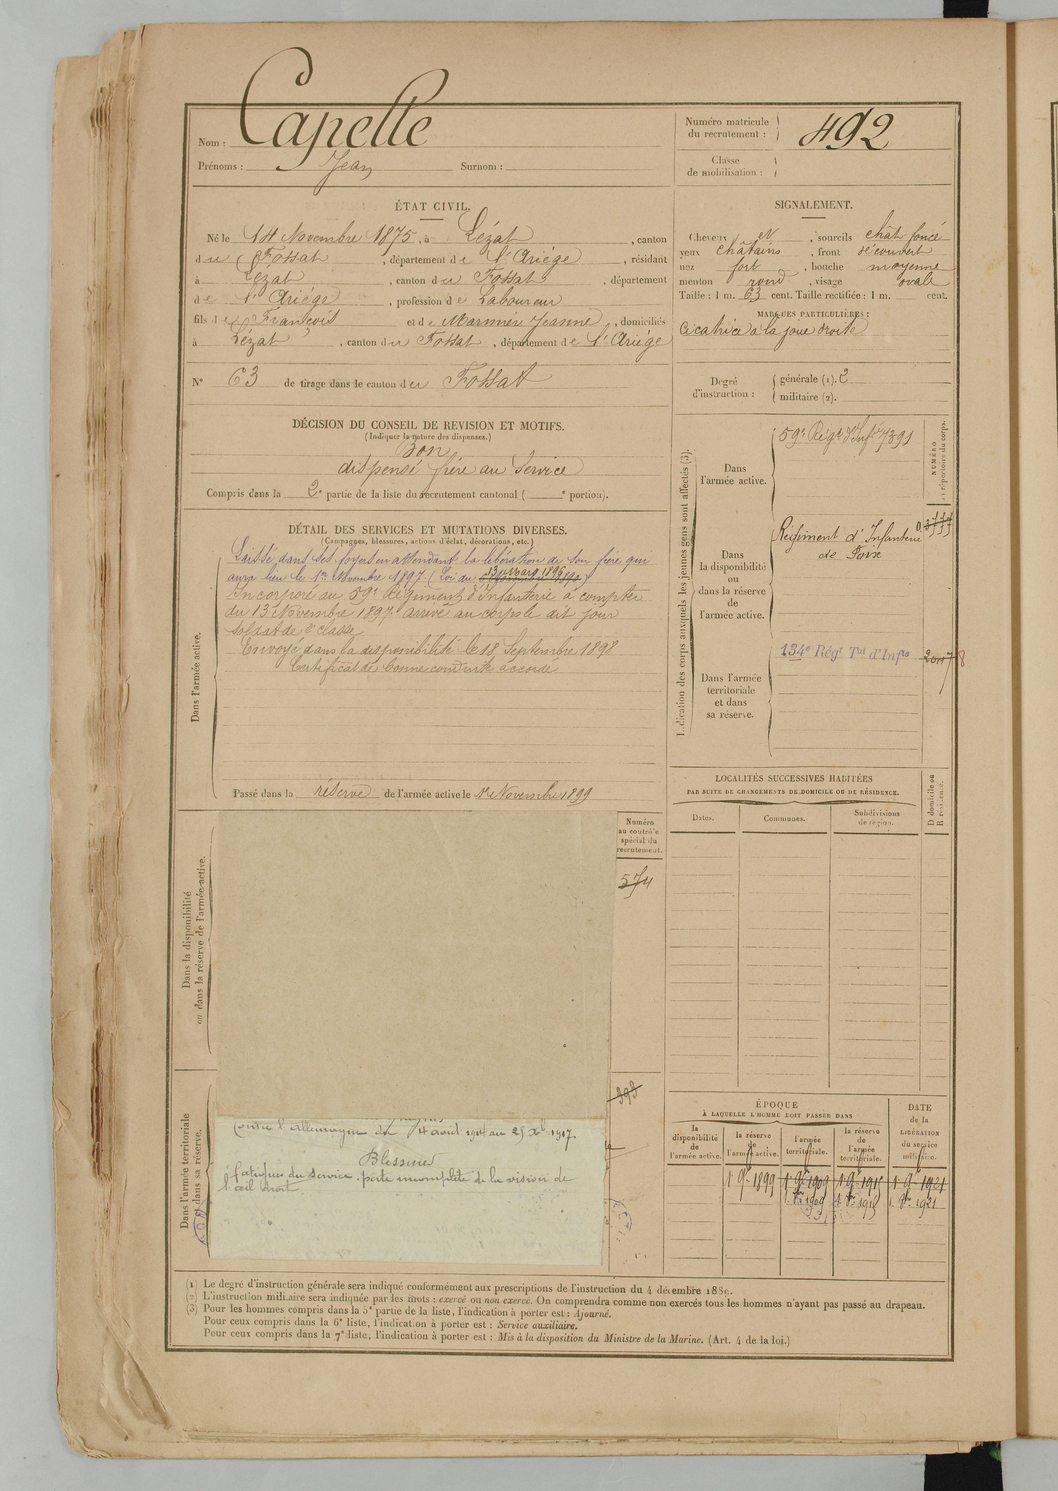 Nom : Capelle
Prénoms : Jean Surnom :
Numéro matricule
du recrutement : 492
Classe
de mobilisation :
ÉTAT CIVIL.
Né le 14 Novembre 1875, à Lézat, canton
du Fossat, département de l'Ariége, résidant
à Lézat, canton du Fossat, département
de l'Ariége, profession de Laboureur
fils de François et de Jeanne, domiciliés
à Lézat, canton du Fossat, département de l'Ariége
N° 63 de tirage dans le canton du Fossat
SIGNALEMENT.
Cheveux et, sourcils chât foncé
yeux châtains, front découvert
nez fort, bouche moyenne
menton rond, visage ovale
Taille : 1 m. 63 cent. Taille rectifiée : 1 m. cent.
MARQUES PARTICULIÈRES :
Cicatrice à la joue droite
Degré
d'instruction :
générale (1). 2
militaire (2).
DÉCISION DU CONSEIL DE REVISION ET MOTIFS.
(Indiquer la nature des dispenses.)
Bon
dispensé frère au Service
Compris dans la 2e partie de la liste du recrutement cantonal ( e portion).
DÉTAIL DES SERVICES ET MUTATIONS DIVERSES.
(Campagnes, blessures, actions d'éclat, décorations, etc.)
Dans l'armée active.
Laissé dans ses foyers en attendant la libération de son frère qui
aura lieu le 1er Novembre 1897. (Loi du
Incorporé au 59e Régiment d'Infanterie à compter
du 13 Novembre 1897 arrivé au corps le dit jour
soldat de 2e classe
Envoyé dans la disponibilité le 18 Septembre 1898
Certificat de bonne conduite accordé
Passé dans la réserve de l'armée active le 1er Novembre 1899
Indication des corps auxquels les jeunes gens sont affectés (3).
NUMÉRO
au répertoire du corps.
Dans
l'armée active.
59e Régt d'Infie 7391
Dans
la disponibilité
ou
dans la réserve
de
l'armée active.
Régiment d'Infanterie
de Foix
Dans l'armée
territoriale
et dans
sa réserve.
134e Régt Tal d'Infie
LOCALITÉS SUCCESSIVES HABITÉES
PAR SUITE DE CHANGEMENTS DE DOMICILE OU DE RÉSIDENCE.
Dates.
Communes.
Subdivisions
de région.
D domicile ou
R résidence.
Dans la disponibilité
ou dans la réserve de l'armée active.
Numéro
au contrôle
spécial du
recrutement.
574
393
Dans l'armée territoriale
et dans sa réserve.
Contre l'allemagne du 4 août 1914 au 25 Xbre 1917.
Blessures
fatigues du service. perte incomplète de la vision de
l'œil droit
ÉPOQUE
À LAQUELLE L'HOMME DOIT PASSER DANS
la
disponibilité
de
l'armée active.
la réserve
de
l'armée active.
l'armée
territoriale.
la réserve
de
l'armée
territoriale.
DATE
de la
LIBÉRATION
du service
militaire.
1 9bre 1899 1 9bre 1909 1 9bre 1915 1 9bre 1921
1 8bre 1909 1 8bre 1915 1 8bre 1921
(1) Le degré d'instruction générale sera indiqué conformément aux prescriptions de l'instruction du 4 décembre 1889.
(2) L'instruction militaire sera indiquée par les mots : exercé ou non exercé. On comprendra comme non exercés tous les hommes n'ayant pas passé au drapeau.
(3) Pour les hommes compris dans la 5e partie de la liste, l'indication à porter est : Ajourné.
Pour ceux compris dans la 6e liste, l'indication à porter est : Service auxiliaire.
Pour ceux compris dans la 7e liste, l'indication à porter est : Mis à la disposition du Ministre de la Marine. (Art. 4 de la loi.)